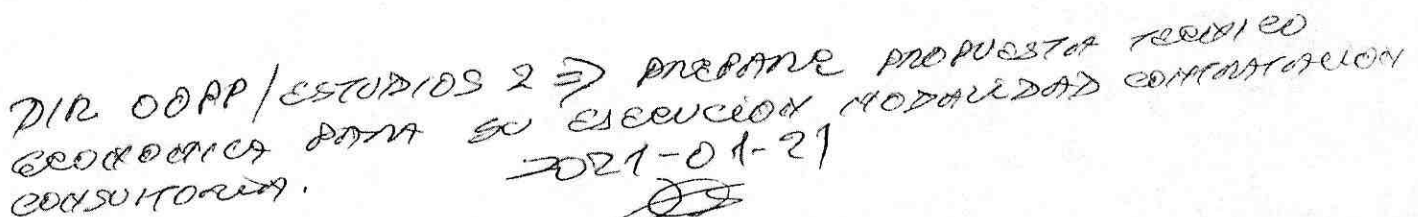 DIR OOPP/ESTUDIOS 2 => PREPARE PROPUESTA TECNICO
ECONOMICA PARA SU EJECUCIÓN MODALIDAD CONTRATACION
CONSULTORIA.
2021-01-21